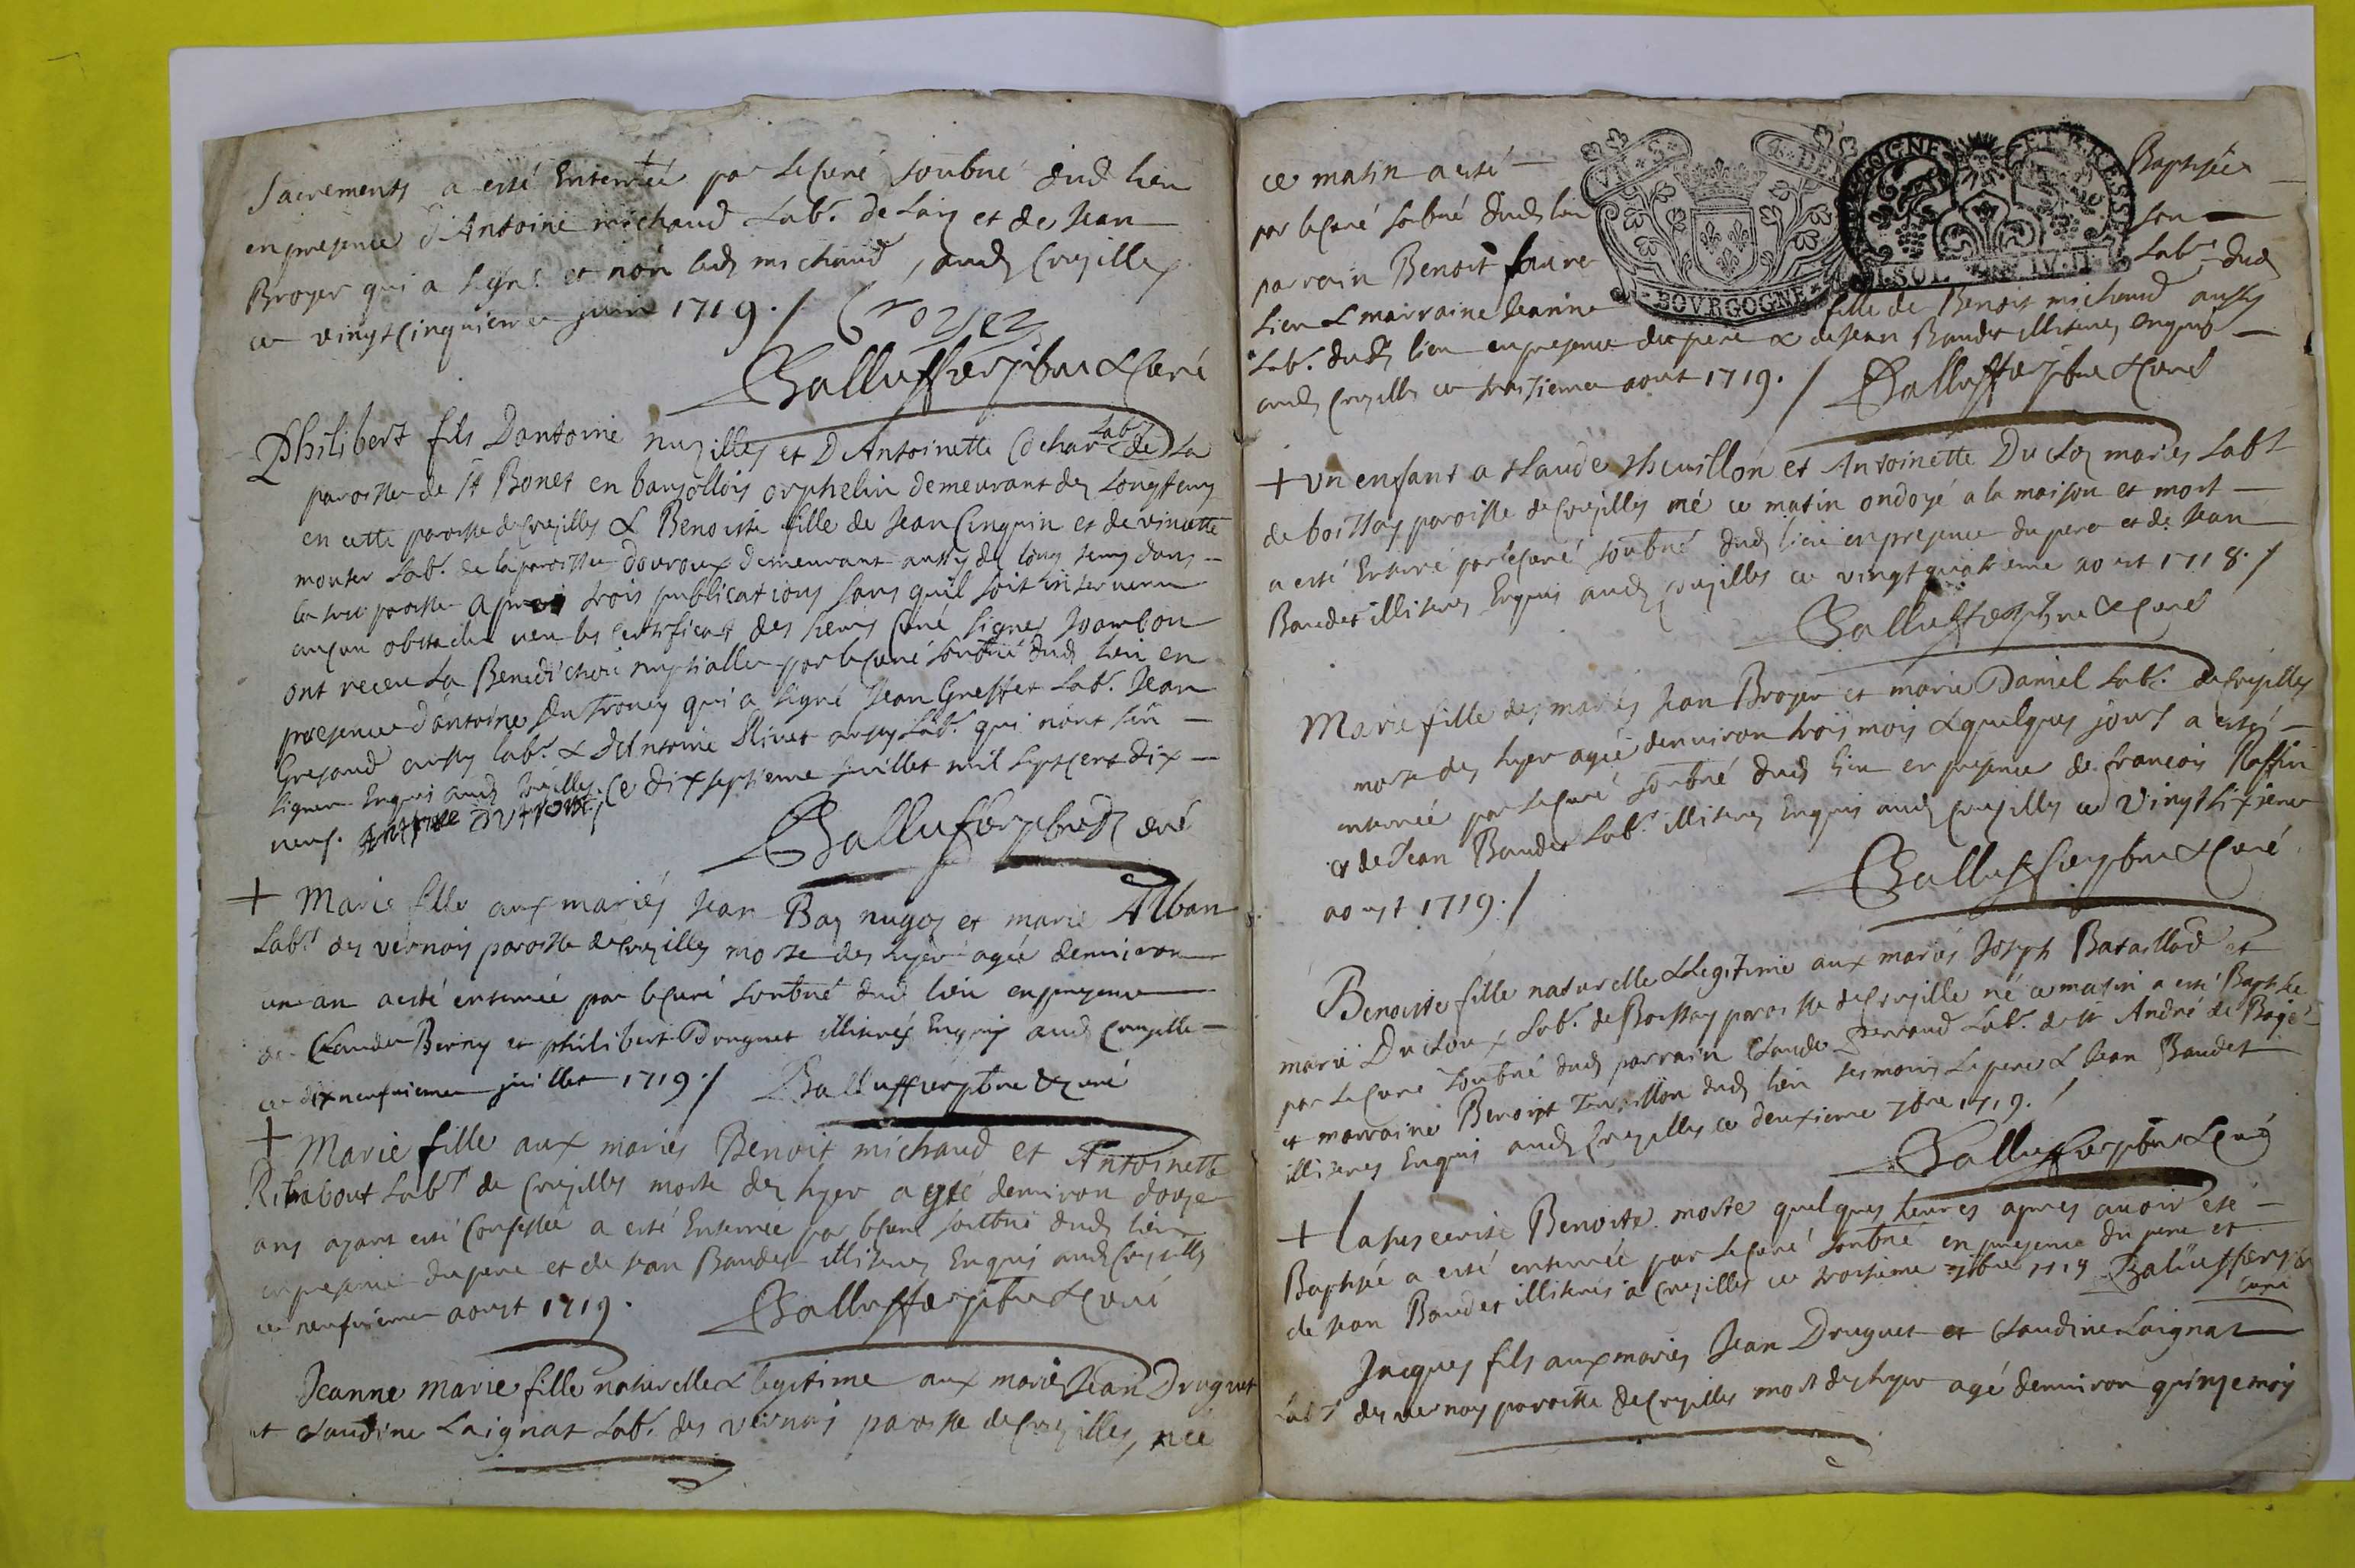 Sacrements a esté Enterrée par le curé soubné dud lieu
en presence d'Antoine michaud Labr. de Laiz et de Jean
Broyer qui a signé et non led michaud, aud Cruzilles
ce vingt cinquieme juin 1719./ Broyer
Balluffier ptbre & Curé
Philibert fils Dantoine nuzilles et D'Antoinette Labr. de La
paroisse de St Bonet en baujollois orphelin demeurant dez Longtems
en cette paroisse de Cruzilles & Benoiste fille de Jean Cinquin et de vincette
monter Labr. de la paroisse d'ouroux demeurant aussy de long tems dans
paroisse apres trois publications sans quil soit intervenu
aucun obstacle veu les certificat des sieurs curé signes
ont receu La Benediction nuptialle par le curé soubné dud lieu en
presence d'antoine Dutroncy qui a signé Jean Greffet Labr. Jean
Grezaud aussy labr. & d'Antoine Rivet aussy Labr. qui n'ont sçu
signer Enquis aud Cruzilles. Ce dix septieme juillet mil sept cent dix
neuf. Antoine dutroncy
Balluffier ptbre & Curé
+ Marie fille aux mariés Jean Bay nugoz et marie Alban
Labrs des vernois paroisse de Cruzilles morte dez hyer agée denviron
un an a esté enterrée par le curé soubné dud lieu en presence
de Claude Berny et philibert Druguet illiterés Enquis aud Cruzille
ce dixneufvieme juillet 1719./ Balluffier ptbre & Curé
+ Marie fille aux mariés Benoit michaud et Antoinette
Ribabout Labrs de Cruzilles morte dez hyer agée denviron douze
ans ayant esté Confessée a esté Enterrée par le curé soubné dud lieu
en presence du pere et de Jean Baudet illiterez Enquis aud Cruzilles
ce neufvieme aoust 1719.
Balluffier ptbre & Curé
Jeanne marie fille naturelle & legitime aux mariés Jean Druguet
et Claudine Laignat Labr. des vernois paroisse de Cruzilles, née
ce matin a esté Baptisée
par le curé soubné dud lieu son
parrain Benoit faure Labr. dud
Lieu & marraine Jeanne fille de Benoit michaud aussy
Labr. dud lieu en presence du pere & de Jean Baudet illiterez enquis
aud Cruzilles ce troisieme aout 1719./ Balluffier ptbre & Curé
BOVRGOGNE
BOVRGOGNE ET BRESSE
I.SOL IV.D
+ Un enfant a Claude Thevillon et Antoinette Ducloz mariés Labrs
de boissay paroisse de Cruzilles né ce matin ondoyé a la maison et mort
a esté Enterré par le curé soubné dud lieu en presence du pere et de Jean
Baudet illiterez Enquis aud Cruzilles ce vingtquatrieme aoust 1718./
Balluffier ptbre & Curé
Marie fille des mariés Jean Broyer et marie Daniel Labr. de Cruzilles
morte dez hyer agée denviron trois mois & quelques jours a esté
enterrée par le curé soubné dud lieu en presence de francois Raffin
et de Jean Baudet Labr. illiterez Enquis aud Cruzilles ce vingt sixieme
aoust 1719./
Balluffier ptbre & Curé
Benoiste fille naturelle & legitime aux mariés Joseph Bataillard et
marie Ducloux Labr. de Boissay paroisse de Cruzille né ce matin a esté Baptisée
par le curé soubné dud parrain Claude Perraud Labr. de St André de Bagé
et marraine Benoiste Tevuillon dud lieu tesmoins Le pere & Jean Baudet
illiterez Enquis aud Cruzilles ce deuxieme 7bre 1719./
Balluffier ptbre & Curé
+ La susecrite Benoite morte quelques heures apres avoir esté
Baptisée a esté enterrée par le curé soubné en presence du pere et
de Jean Baudet illiterés a Cruzilles ce troisieme 7bre 1719 Balluffier ptbre
Curé
Jacques fils aux mariés Jean Druguet et Claudine Laignat
Labrs des vernoy paroisse de Cruzilles mort dez hyer agé denviron quinze mois